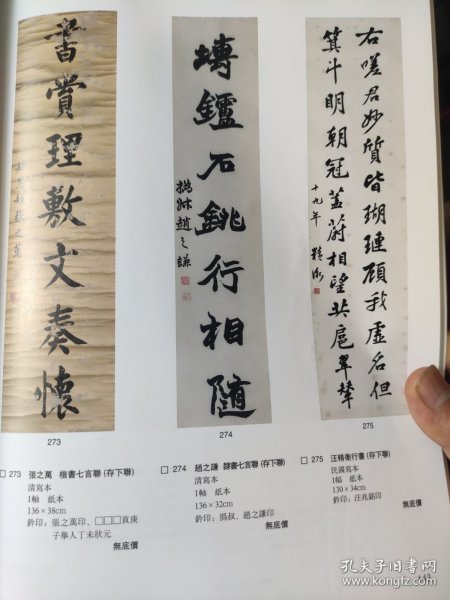 書賞理敷文奏懷
張之萬
塼鑪石銚行相隨
撝叔趙之謙
右嗟君妙質皆瑚璉顧我虛名但
箕斗明朝冠蓋蔚相望共扈翠輦
十九年 精衛
273
274
275
□ 273 張之萬 楷書七言聯(存下聯)
清寫本
1軸 紙本
136×38cm
鈐印:張之萬印、□□□貢庚
子舉人丁未狀元
無底價
□ 274 趙之謙 隸書七言聯(存下聯)
清寫本
1軸 紙本
136×32cm
鈐印:撝叔、趙之謙印
無底價
□ 275 汪精衛行書(存下聯)
民國寫本
1幅 紙本
130×34cm
鈐印:汪兆銘印
無底價
孔夫子旧书网
www.kongfz.com